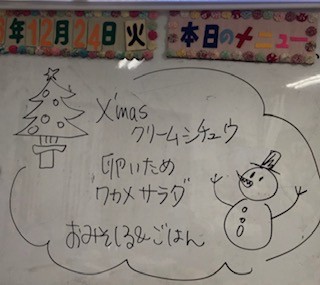 年12月24日火
本日のメニュー
X'mas
クリームシチュウ
卵いため
ワカメサラダ
おみそしる&ごはん